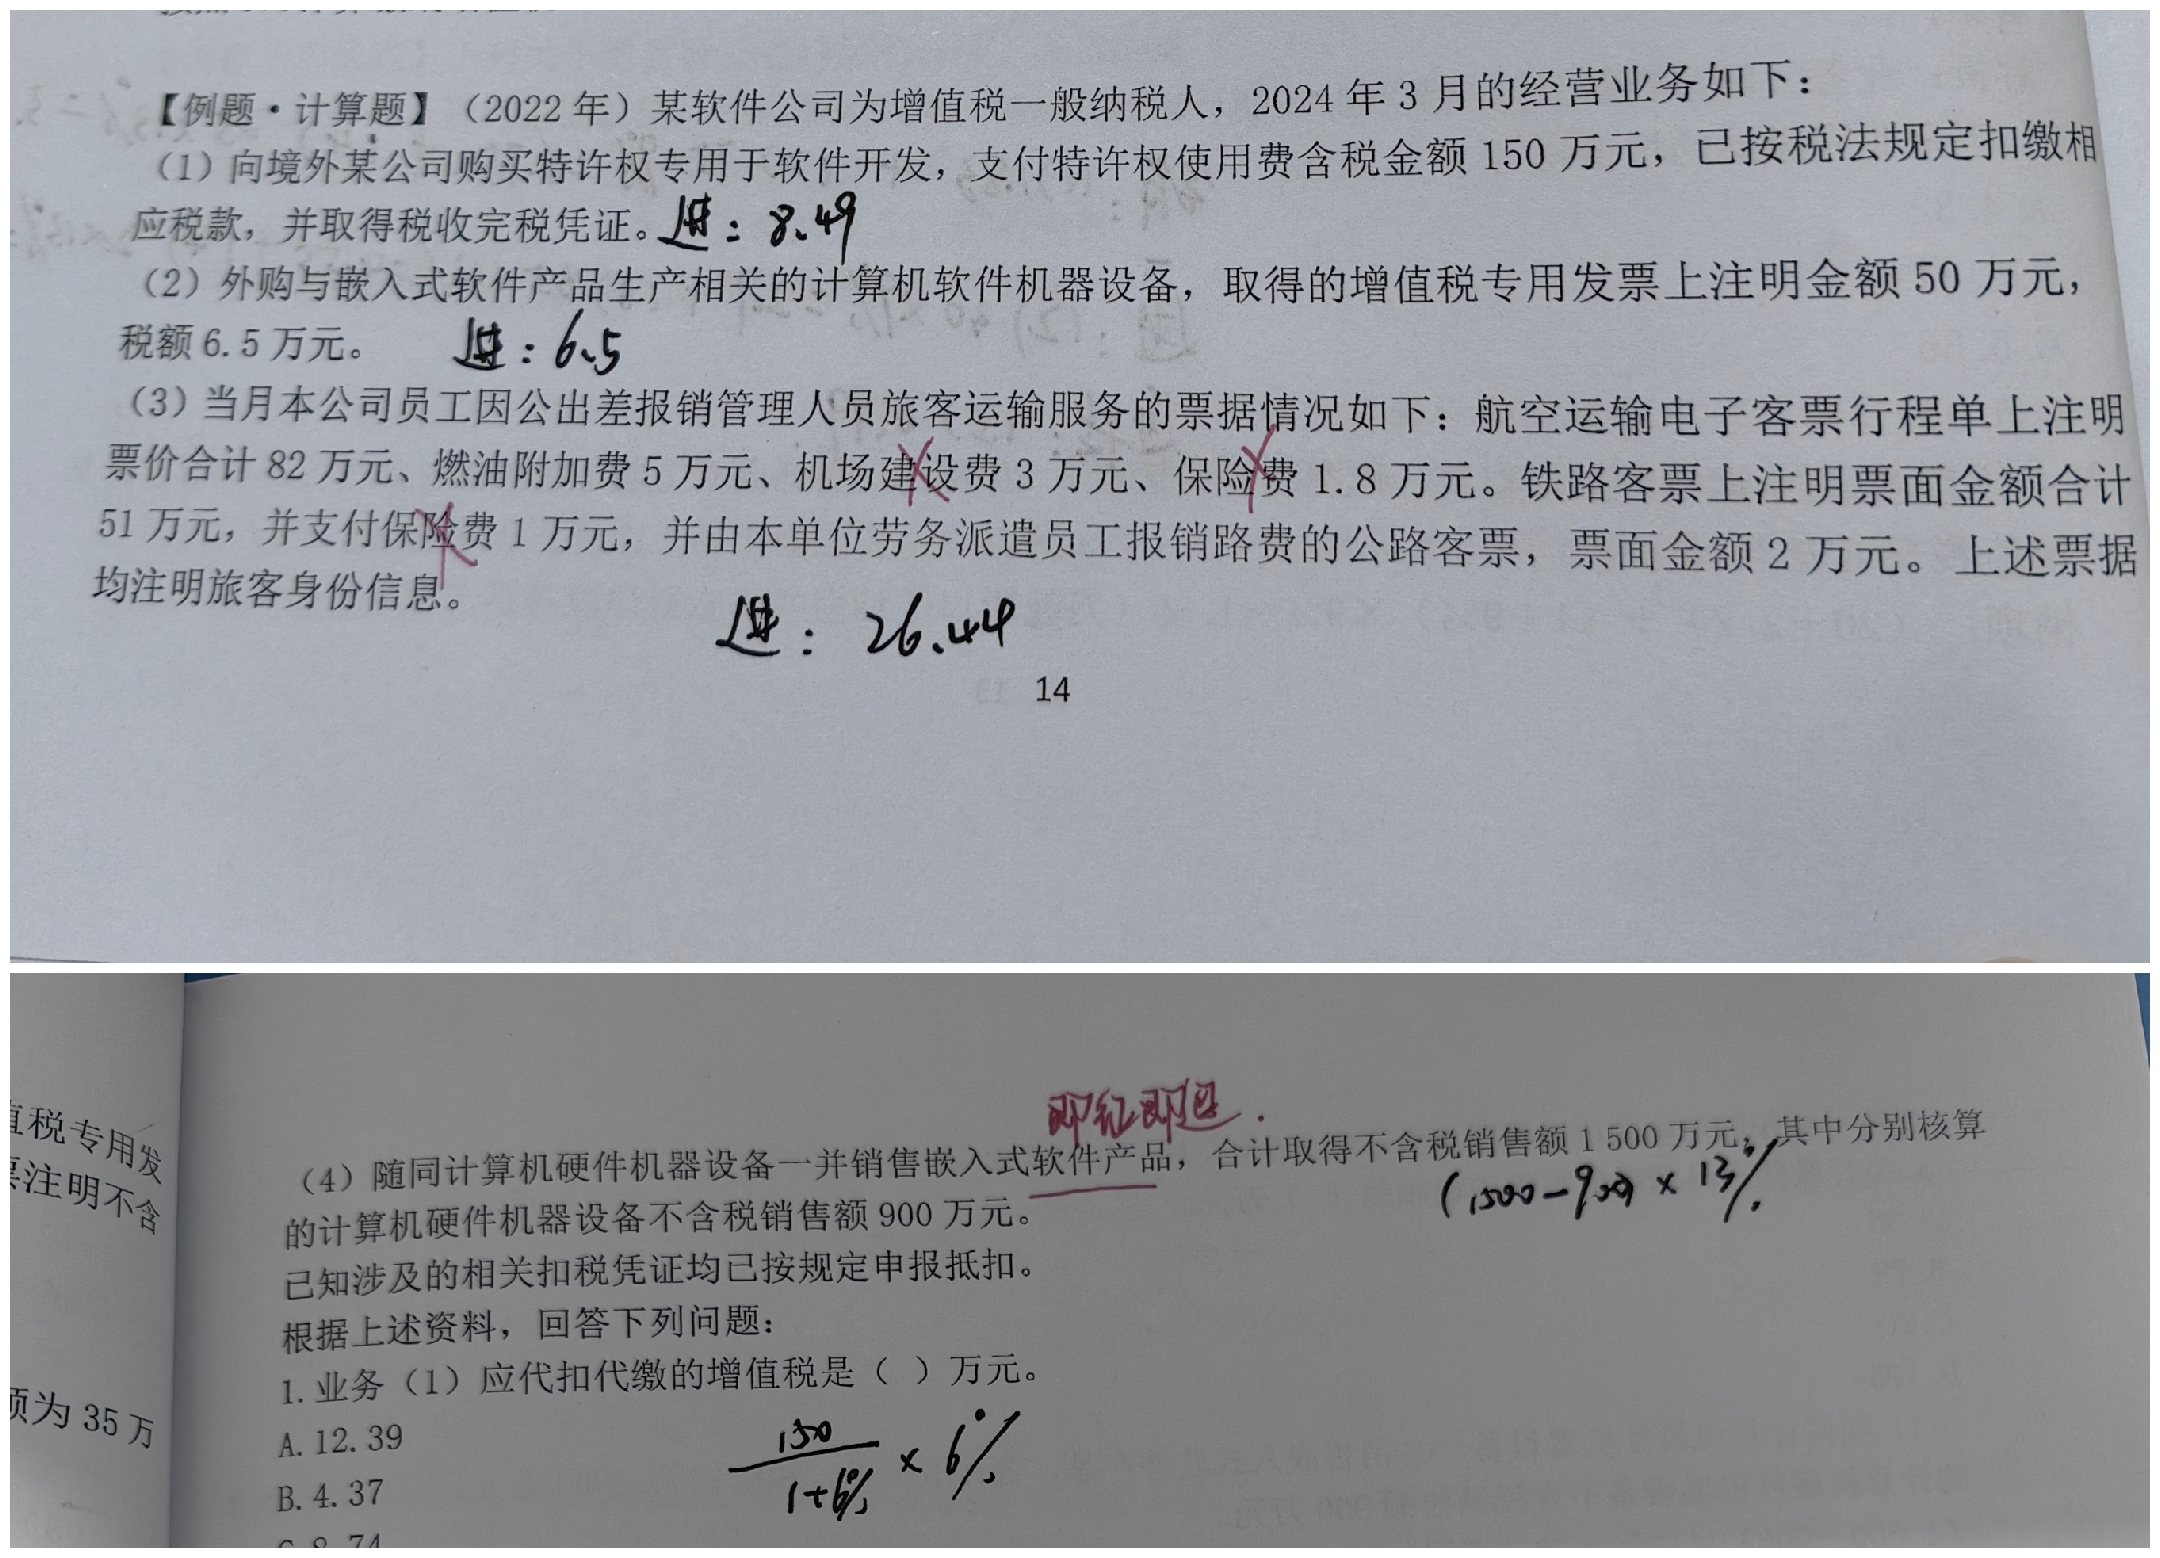 【例题·计算题】（2022 年）某软件公司为增值税一般纳税人，2024 年 3 月的经营业务如下：
（1）向境外某公司购买特许权专用于软件开发，支付特许权使用费含税金额 150 万元，已按税法规定扣缴相
应税款，并取得税收完税凭证。进：8.49
（2）外购与嵌入式软件产品生产相关的计算机软件机器设备，取得的增值税专用发票上注明金额 50 万元，
税额 6.5 万元。 进：6.5
（3）当月本公司员工因公出差报销管理人员旅客运输服务的票据情况如下：航空运输电子客票行程单上注明
票价合计 82 万元、燃油附加费 5 万元、机场建设费 3 万元、保险费 1.8 万元。铁路客票上注明票面金额合计
51 万元，并支付保险费 1 万元，并由本单位劳务派遣员工报销路费的公路客票，票面金额 2 万元。上述票据
均注明旅客身份信息。
进：26.44
14
值税专用发
票注明不含
额为 35 万
即征即退.
（4）随同计算机硬件机器设备一并销售嵌入式软件产品，合计取得不含税销售额 1 500 万元，其中分别核算
的计算机硬件机器设备不含税销售额 900 万元。
(1500-900) × 13%
已知涉及的相关扣税凭证均已按规定申报抵扣。
根据上述资料，回答下列问题：
1. 业务（1）应代扣代缴的增值税是（ ）万元。
A. 12.39
150/(1+6%) × 6%
B. 4.37